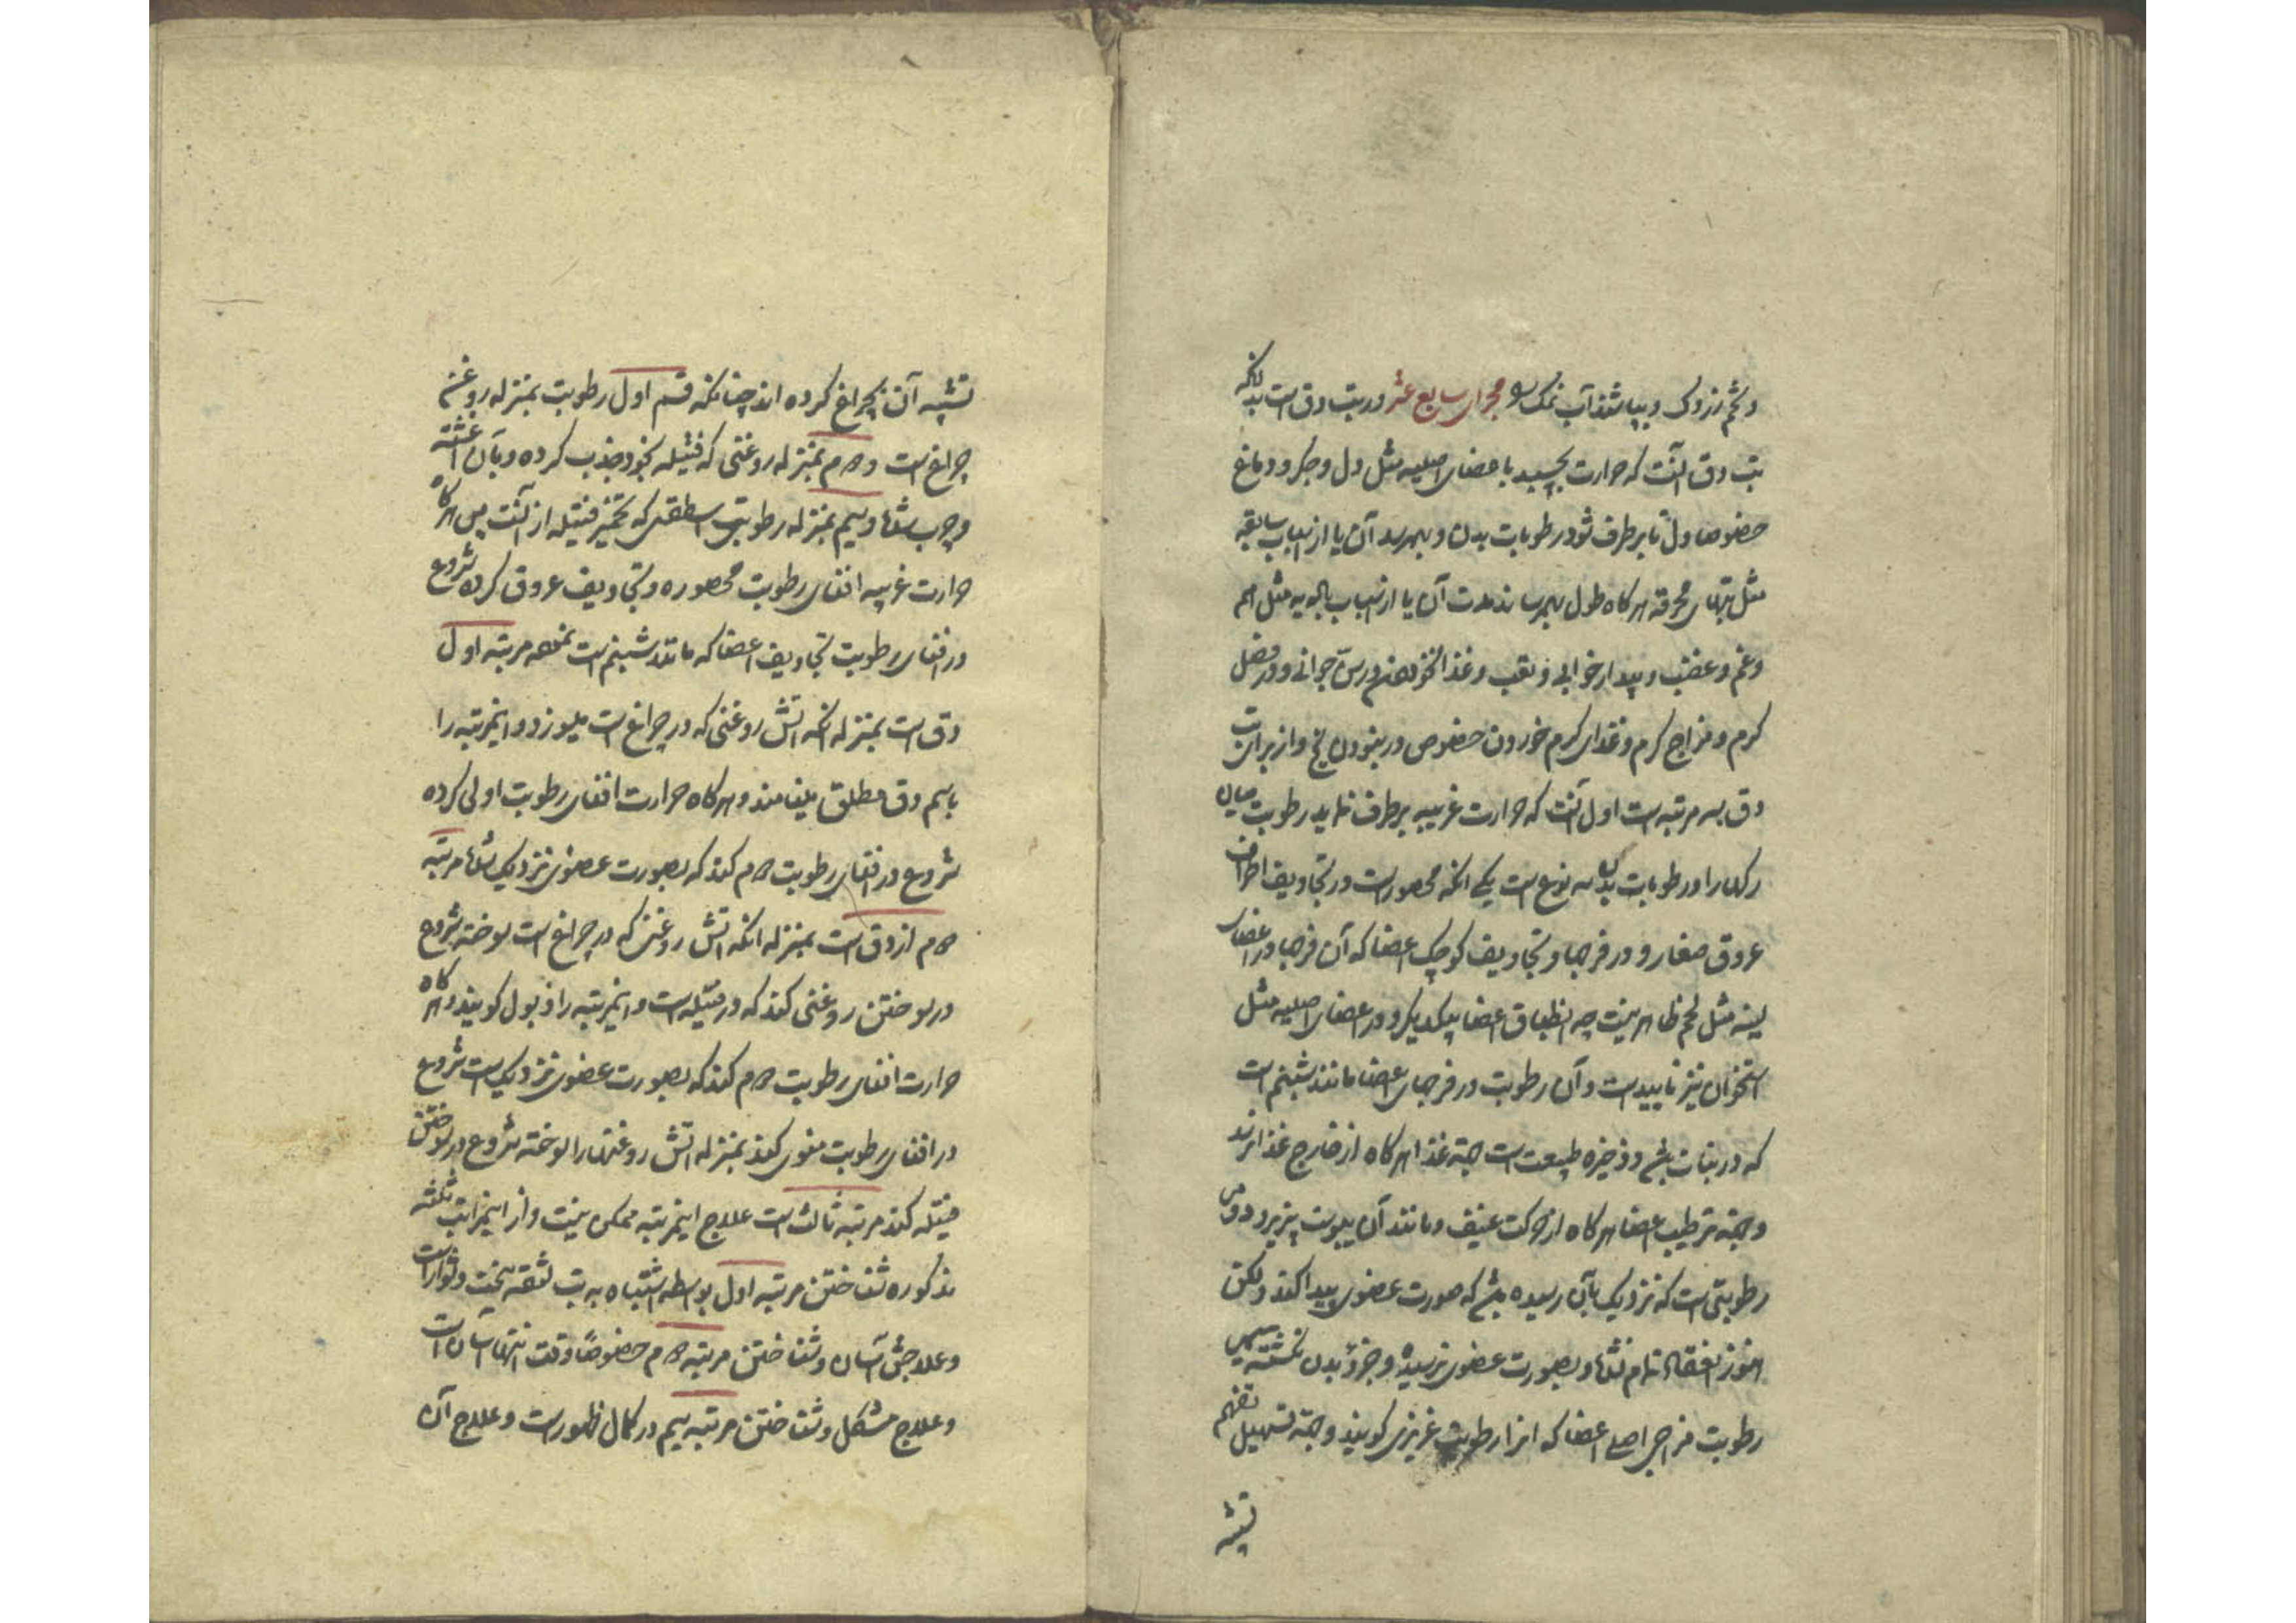 و تخم رزدک و بپاشند آب نمک و مجرای سابع عشر در تب دق است بدانکه
تب دق آنست که حرارت بچسبد باعضای اصلیه مثل دل و جکر و دماغ
خصوصا دل تا برطرف شود رطوبات بدن و بهمرسد آن یا از اسباب سابقه
مثل تبهای محرقه هرکاه طول بهمرساند مدت آن یا از اسباب بادیه مثل هم
و غم و غضب و بیدارخوابی و تعب و غذا نخوردن در سن جوانی و در فصل
کرم و مزاج کرم و غذای کرم خوردن خصوص در نبودن یخ و از برای تب
دق سه مرتبه است اول آنست که حرارت غریبه برطرف نماید رطوبت میان
رکها را و رطوبات بدن سه نوع است یکی انکه محصور است در تجاویف اطراف
عروق صغار و در فرجها و تجاویف کوچک اعضا که آن فرجها در اعضای
لینه مثل لحم ظاهر نیست چه انطباق اعضا بیکدیکر و در اعضای اصلیه مثل
استخوان نیز ناپیداست و آن رطوبت در فرجهای اعضا مانند شبنم است
که در نبات باشد و ذخیره طبیعت است جهة غذا هرکاه از خارج غذا نرسد
و جهة ترطیب اعضا هرکاه از حرکت عنیف و مانند آن یبوست پذیرد دومی
رطوبتی است که نزدیک بآن رسیده باشد که صورت عضوی پیدا کند و لکن
هنوز انعقاد تمام نشده و بصورت عضوی نرسیده و جزو بدن نکشته سیمی
رطوبت مزاجی اصلی اعضا که انرا رطوبت غریزی کویند و جهة تسهیل تفهیم
تشبیه
تشبیه آن بچراغ کرده اند چنانکه قسم اول رطوبت بمنزله روغن
چراغ است و دوم بمنزله روغنی که فتیله بخود جذب کرده و بآن آغشته
و چرب شده و سیم بمنزله رطوبتی اسطقسی که تخمیر فتیله از آنست پس هرکاه
حرارت غریبه افنای رطوبت محصوره و تجاویف عروق کرده شروع
در افنای رطوبت تجاویف اعضا که مانند شبنم است نمود مرتبه اول
دق است بمنزله انکه اتش روغنی که در چراغ است میسوزد و اینمرتبه را
باسم دق مطلق مینامند و هرکاه حرارت افنای رطوبت اولی کرده
شروع در افنای رطوبت دوم کند که بصورت عضوی نزدیک شده مرتبه
دوم از دق است بمنزله انکه اتش روغنی که در چراغ است سوخته شروع
در سوختن روغنی کند که در فتیله است و اینمرتبه را ذبول کویند و هرکاه
حرارت افنای رطوبت دوم کند که بصورت عضوی نزدیک است شروع
در افنای رطوبت منوی کند بمنزله اتش روغنها را سوخته شروع در سوختن
فتیله کند مرتبه ثالث است علاج اینمرتبه ممکن نیست و از اینمراتب ثلثه
مذکوره شناختن مرتبه اول بواسطه اشتباه به تب لثقه سخت و دشوار است
و علاجش آسان و شناختن مرتبه دوم خصوصًا وقت انتها آسان است
و علاج مشکل و شناختن مرتبه سیم در کمال ظهور است و علاج آن